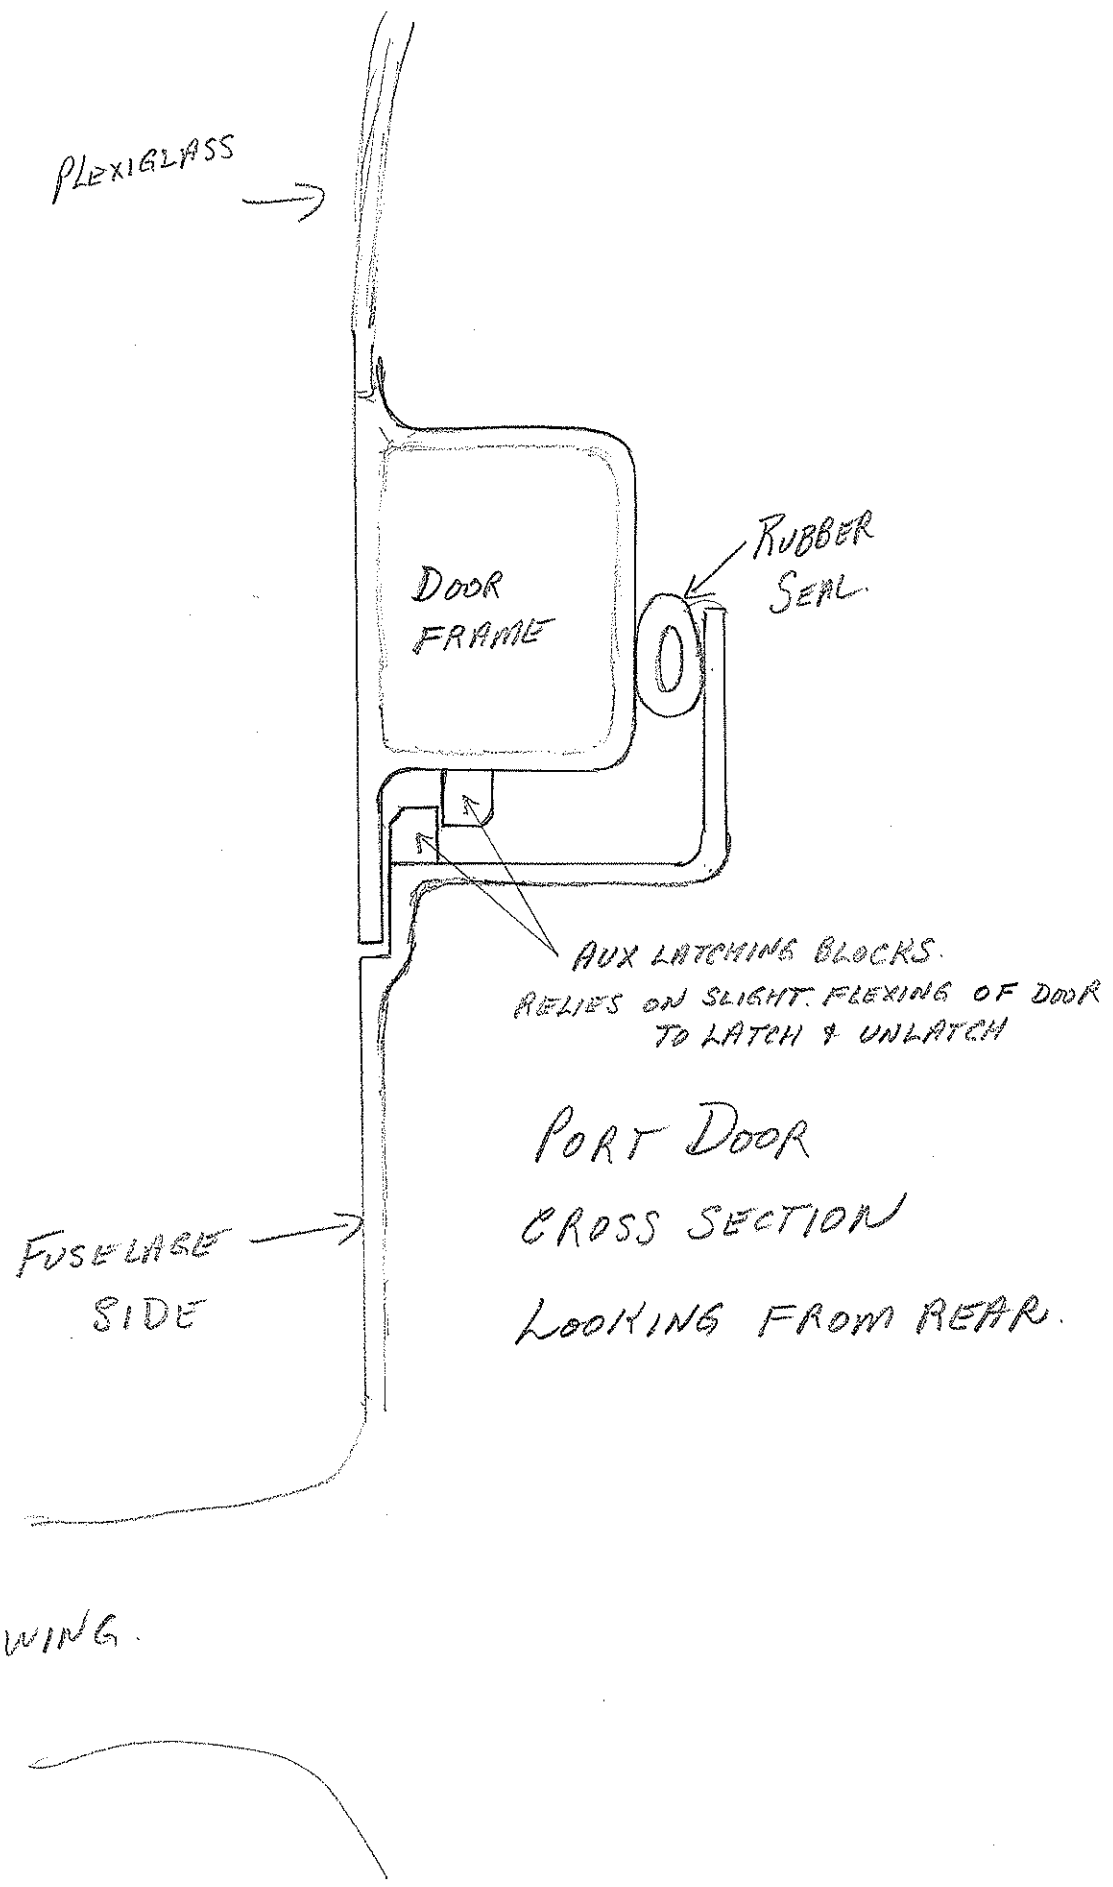 PLEXIGLASS
DOOR
FRAME
RUBBER
SEAL.
AUX LATCHING BLOCKS.
RELIES ON SLIGHT. FLEXING OF DOOR
TO LATCH & UNLATCH
PORT DOOR
CROSS SECTION
LOOKING FROM REAR.
FUSELAGE
SIDE
WING.